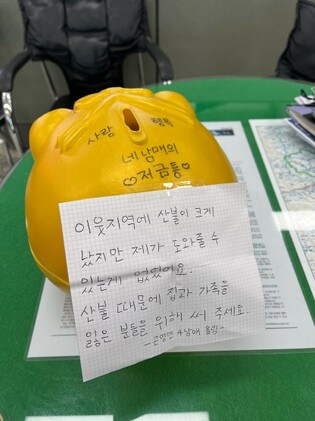 사랑 행복
네남매의
♡저금통♡
이웃지역에 산불이 크게
났지만 제가 도와줄 수
있는게 없었어요.
산불 때문에 집과 가족을
잃은 분들을 위해 써 주세요.
4남매 올림-